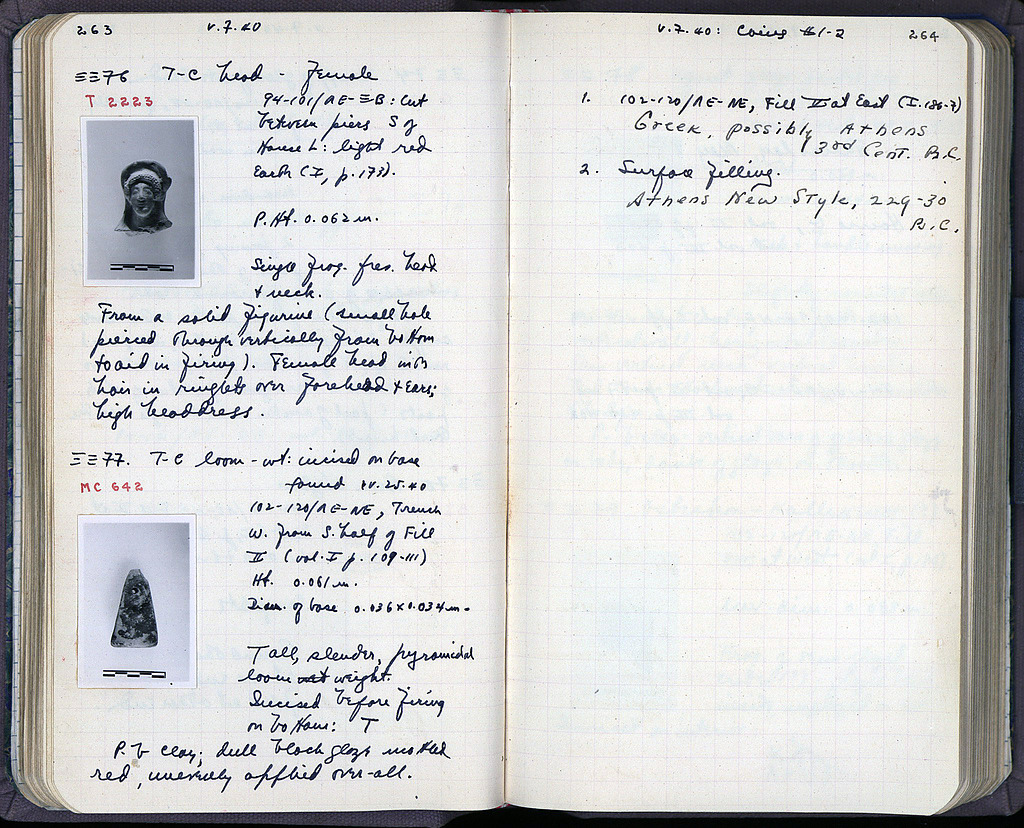 263 V.7.40
ΞΞ76 T-C head - Female
T 2223
94-101/ΛΕ-ΞΒ: Cut
between piers S of
House L: light red
Earth (I, p.173).
P. Ht. 0.062 m.
Single frag. pres. head
+ neck.
From a solid figurine (small hole
pierced through vertically from bottom
to aid in firing). Female head with
hair in ringlets over forehead + Ears;
high headdress.
ΞΞ77. T-C loom-wt: incised on base
found IV.25.40
MC 642
102-120/ΛΕ-ΝΕ, Trench
W. from S. half of Fill
II (vol. I p. 109-111)
Ht. 0.061 m.
Diam. of base 0.036 x 0.034 m.
Tall, slender, pyramidal
loom weight.
Incised before firing
on bottom: T
P. b clay; dull black glaze mottled
red, unevenly applied over-all.
V.7.40: Coins #1-2 264
1. 102-120/ΛΕ-ΝΕ, Fill II at East (I.186-7)
Greek, possibly Athens
3rd Cent. B.C.
2. Surface filling.
Athens New Style, 229-30
B.C.